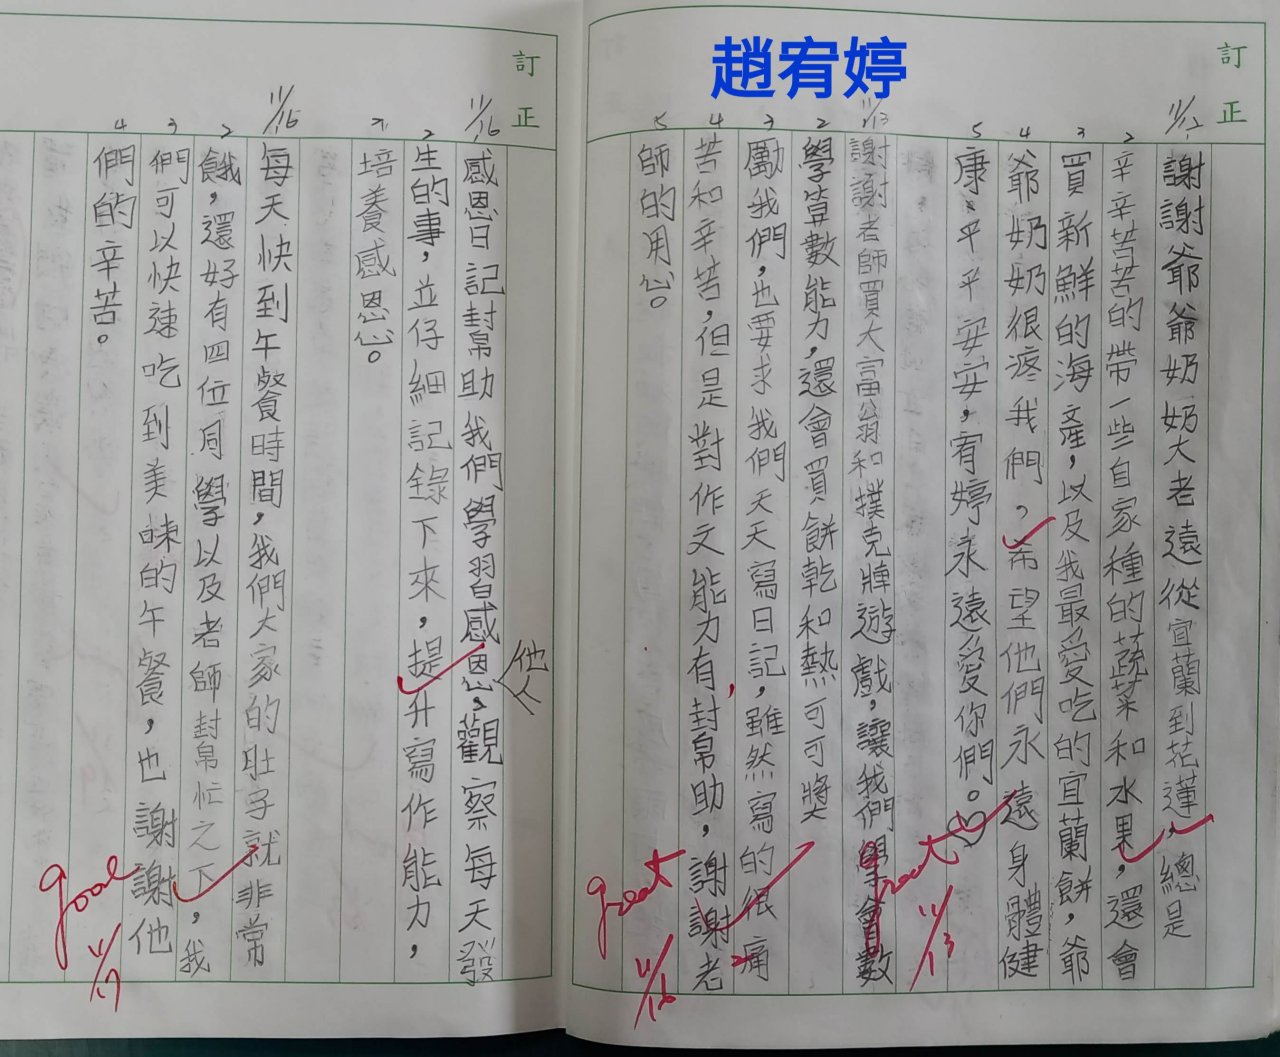 趙宥婷
訂正
11/12
謝謝爺爺奶奶大老遠從宜蘭到花蓮,總是
2
辛辛苦苦的帶一些自家種的蔬菜和水果,還會
3
買新鮮的海產,以及我最愛吃的宜蘭餅,爺
4
爺奶奶很疼我們,希望他們永遠身體健
5
康、平平安安,宥婷永遠愛你們。♡
great
11/13
11/13
謝謝老師買大富翁和撲克牌遊戲,讓我們學會數
2
學算數能力,還會買餅乾和熱可可獎
3
勵我們,也要求我們天天寫日記,雖然寫的很痛
4
苦和辛苦,但是對作文能力有,封帛助,謝謝老
5
師的用心。
great
11/16
訂正
11/16
感恩日記封帛助我們學習感恩他人,觀察每天發
2
生的事,並仔細記錄下來,提升寫作能力,
培養感恩心。
11/15
每天快到午餐時間,我們大家的肚子就非常
2
餓,還好有四位同學以及老師封帛忙之下,我
3
們可以快速吃到美味的午餐,也謝謝他
4
們的辛苦。
good
11/17